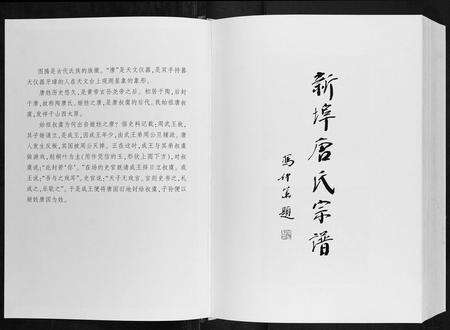 图腾是古代氏族的族徽。“唐”是天文仪器,是双手持着
天仪器牙璋的人在天文台上观测星象的象形。
唐姓历史悠久,是黄帝玄孙尧帝之后。相居于陶,后封
于唐,故称陶唐氏。姬姓之唐,是唐叔虞的后代。氏始祖唐叔
虞,发祥于山西太原。
始祖叔虞为何出自姬姓之唐?据史料记载,周武王死,
其子姬诵立,是成王,因成王年少,由武王弟周公旦辅政。唐
人发生反叛,其国被周公灭掉。正在这时,成王与其弟叔虞
做游戏,削桐叶为圭(用作凭信的玉,形状上圆下方),对叔
虞说:“此封若‘你’。”在场的史官就请成王择日立叔虞。成
王说:“吾与之戏耳”。史官说:“天子无戏言,言则史书之,礼
成之,乐歌之”。于是成王便将唐国旧地封给叔虞,子孙便以
新埠唐氏宗谱